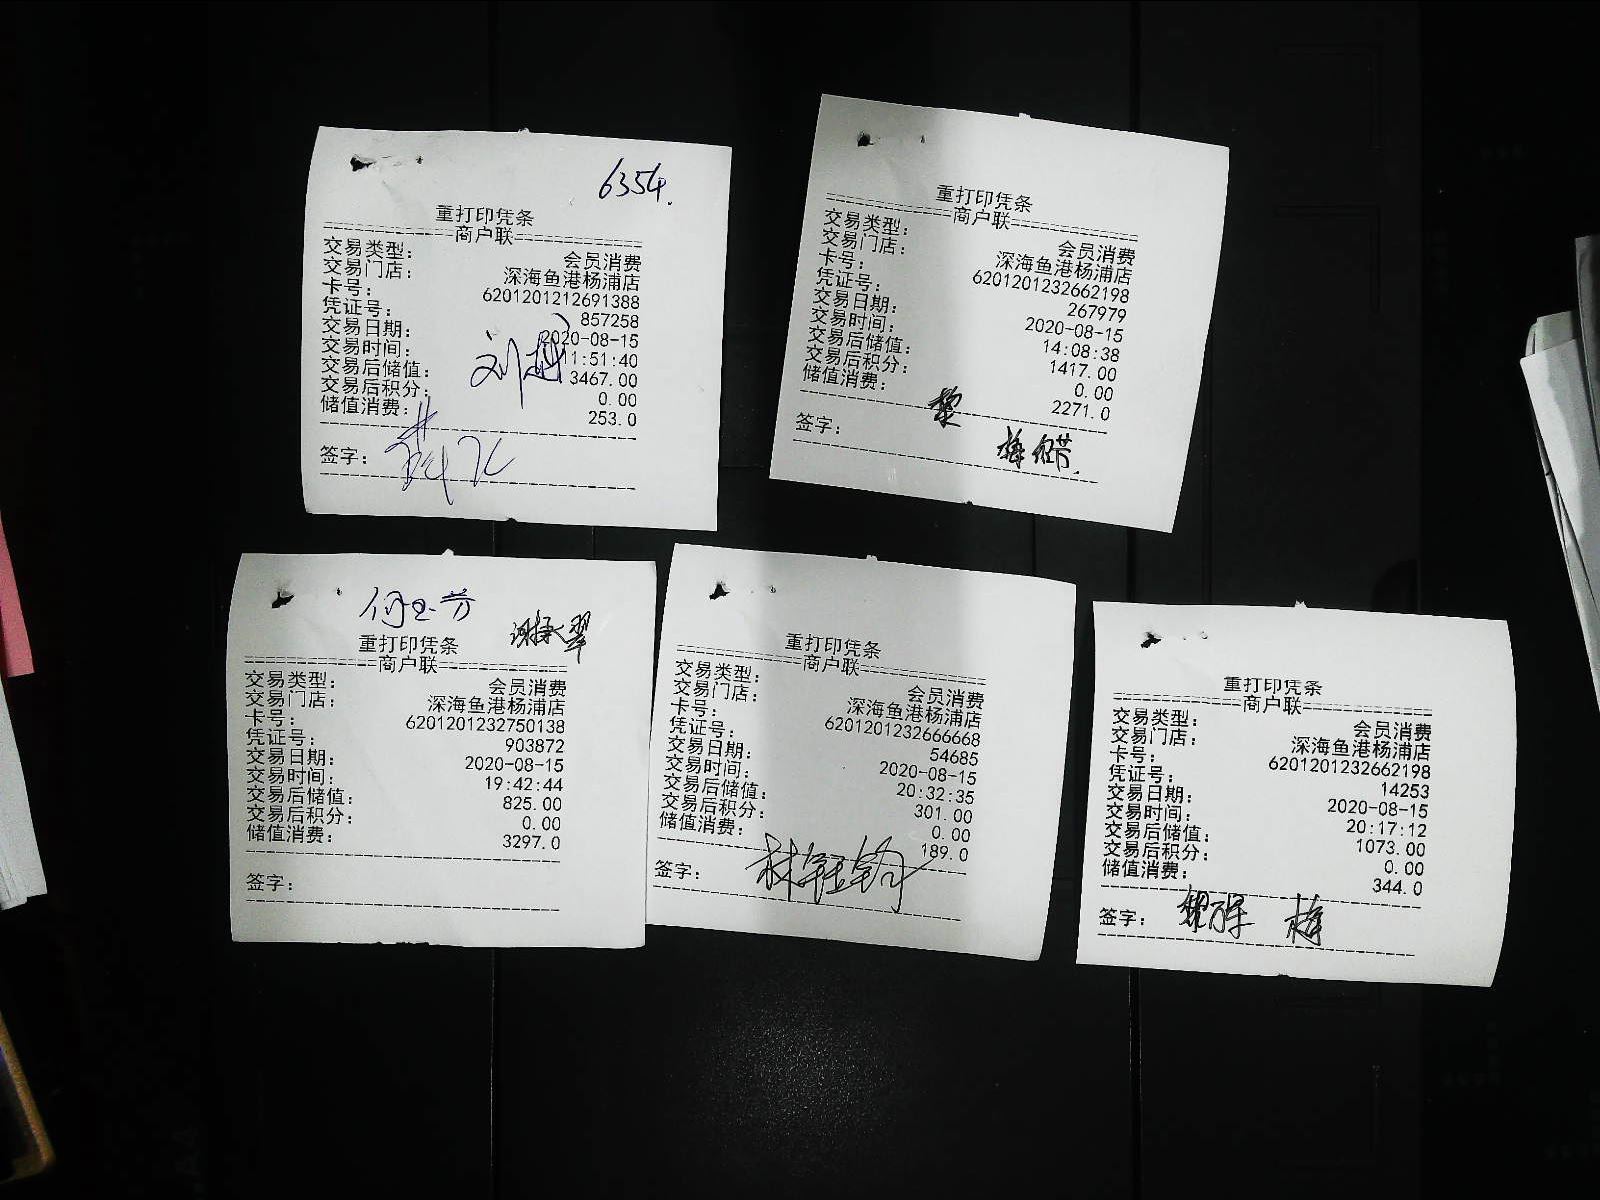 6354.
重打印凭条
商户联
交易类型: 会员消费
交易门店: 深海鱼港杨浦店
卡号: 6201201212691388
凭证号: 857258
交易日期: 2020-08-15
交易时间: 11:51:40
交易后储值: 3467.00
交易后积分: 0.00
储值消费: 253.0
签字:
重打印凭条
商户联
交易类型: 会员消费
交易门店: 深海鱼港杨浦店
卡号: 6201201232662198
凭证号: 267979
交易日期: 2020-08-15
交易时间: 14:08:38
交易后储值: 1417.00
交易后积分: 0.00
储值消费: 2271.0
签字:
重打印凭条
商户联
交易类型: 会员消费
交易门店: 深海鱼港杨浦店
卡号: 6201201232750138
凭证号: 903872
交易日期: 2020-08-15
交易时间: 19:42:44
交易后储值: 825.00
交易后积分: 0.00
储值消费: 3297.0
签字:
重打印凭条
商户联
交易类型: 会员消费
交易门店: 深海鱼港杨浦店
卡号: 6201201232666668
凭证号: 54685
交易日期: 2020-08-15
交易时间: 20:32:35
交易后储值: 301.00
交易后积分: 0.00
储值消费: 189.0
签字:
重打印凭条
商户联
交易类型: 会员消费
交易门店: 深海鱼港杨浦店
卡号: 6201201232662198
凭证号: 14253
交易日期: 2020-08-15
交易时间: 20:17:12
交易后储值: 1073.00
交易后积分: 0.00
储值消费: 344.0
签字: